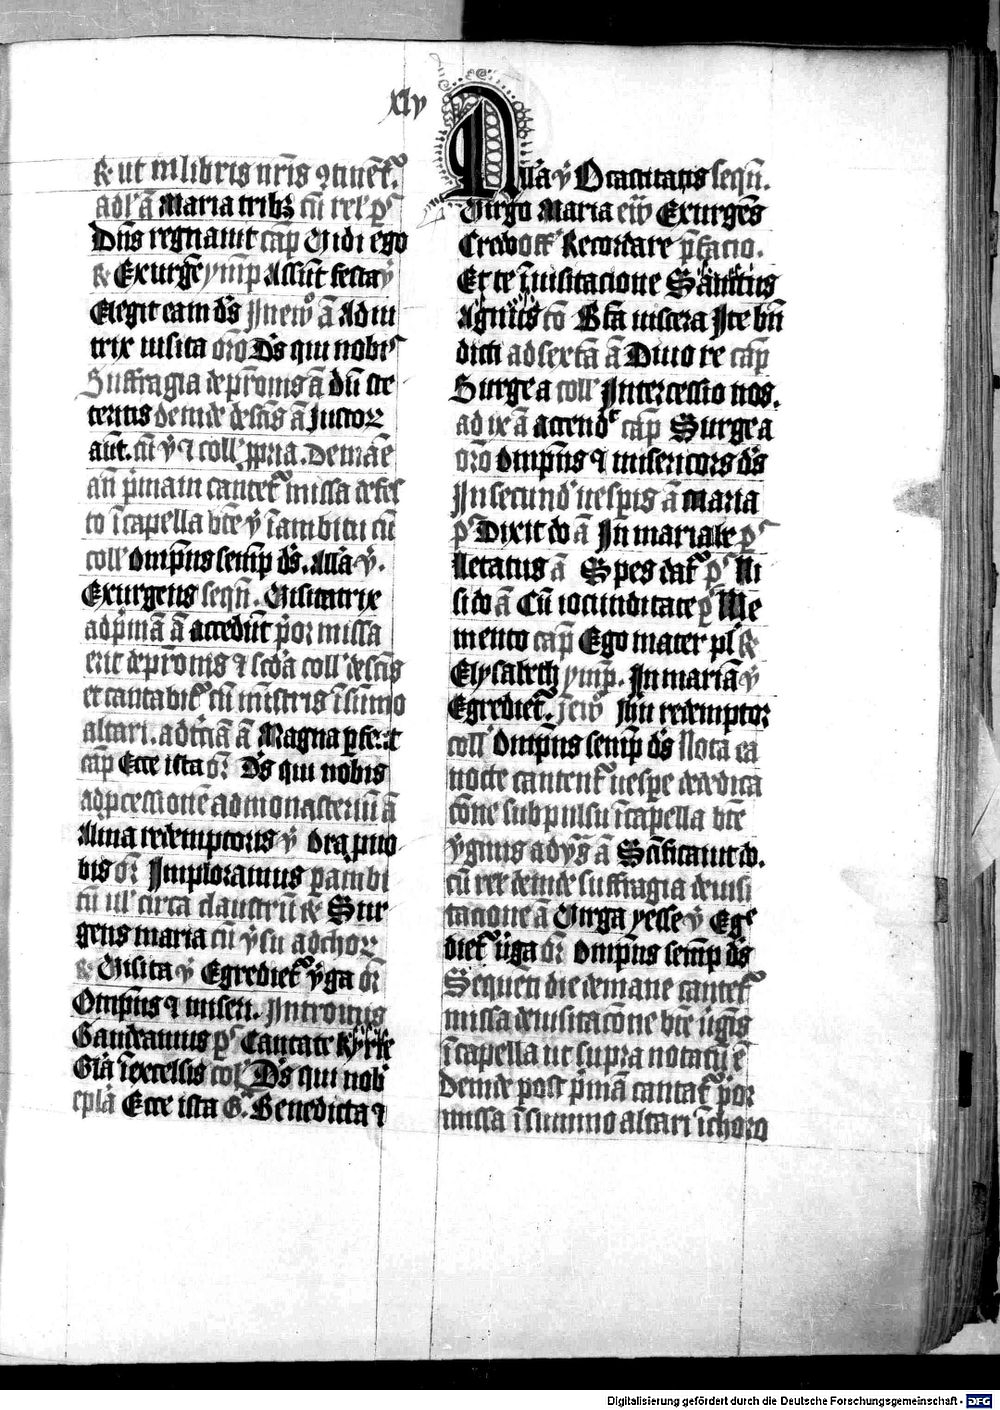 xlv
ut in libris nr̄is ꝯtinēt᷑.
ad l' ā Maria tribꝫ cū rel' pˢ
Dn̄s regnauit cap̄ Vidi ego
Exurgē ymp̄ Assūt festa ꝟ
Elegit eam dˢs In ew̄ ā Adiu
trix uisita or̄o Dˢs qui nobis
Suffragia de pr̄onis ā dū cte
ternis deinde de scīs ā Justorꝝ
aūt. cū ꝟ ⁊ coll' ppria. De mane
an̄ pͥmam cantet᷑ missa de fes
to ī capella bt̄e ꝟ ī ambitu cū
coll' omp̄ns semp̄ dˢs. Alla ꝟ.
Exurgens seqn̄. Visitatrix
ad pͥmā ā accedūt pͥor missa
erit de pr̄onis ⁊ scd̄a coll' de scīs
et cantabit᷑ cū mīstris ī sūmo
altari. ad tciā ā Magna pfecit
cap̄ Ecce ista or̄ Dˢs qui nobis
ad pcessionē ad monasteriū ā
Alma redemptoris ꝟ Ora pro no
bis or̄ Imploramus p ambi
tū ul' circa claustrū Sur
gens maria cū ꝟsu ad chorū
Visita ꝟ Egrediet᷑ ꝟga or̄
Omp̄ns ⁊ miseri. Introitus
Gaudeamus pˢ Cantate kyrie
Glā ī excelsis coll' Dˢs qui nob'
epl̄a Ecce ista Gͬ. Benedicta ⁊
Alla ꝟ Oracitatis seqn̄.
Virgo Maria ew̄ Exurgens
Credo off' Recordare p̄facio.
Et te ī uisitacione Sanctus
Agnus cō Bt̄a uiscera Ite bn̄
dicti ad sextā ā Diuo re cap̄
Surge a coll' Intercessio nos.
ad ix ā accendͭ cap̄ Surge a
or̄o omp̄ns ⁊ misericors dˢs
In secund' uesp̄is ā maria
pˢ Dixit do ā In mariale pˢ
Letatus ā Spes dat᷑ pˢ Ni
si do ā Cū iocunditate pˢ Me
mento cap̄ Ego mater pl'
Elysabeth ymp̄. In mariā ꝟ
Egrediet᷑. in ew̄ Ihu redemptor
coll' Omp̄ns semp̄ dˢs Nota ea
nocte cantent᷑ uespe de dedica
cōne sub pulsu ī capella bt̄e
ꝟginis ad ꝟs ā Scīficauit do.
cū rel' deinde suffragia de uisi
tacione ā Virga yesse ꝟ Egͤ
diet᷑ uͥga or̄ Omp̄ns semp̄ dˢs
Sequen̄ die de mane cantet᷑
missa de uisitacōne bt̄e uͥgīs
ī capella ut supra notatū ē
Deinde post pͥmā cantat᷑ pͥor
missa ī summo altari ī choro
Digitalisierung gefördert durch die Deutsche Forschungsgemeinschaft - DFG